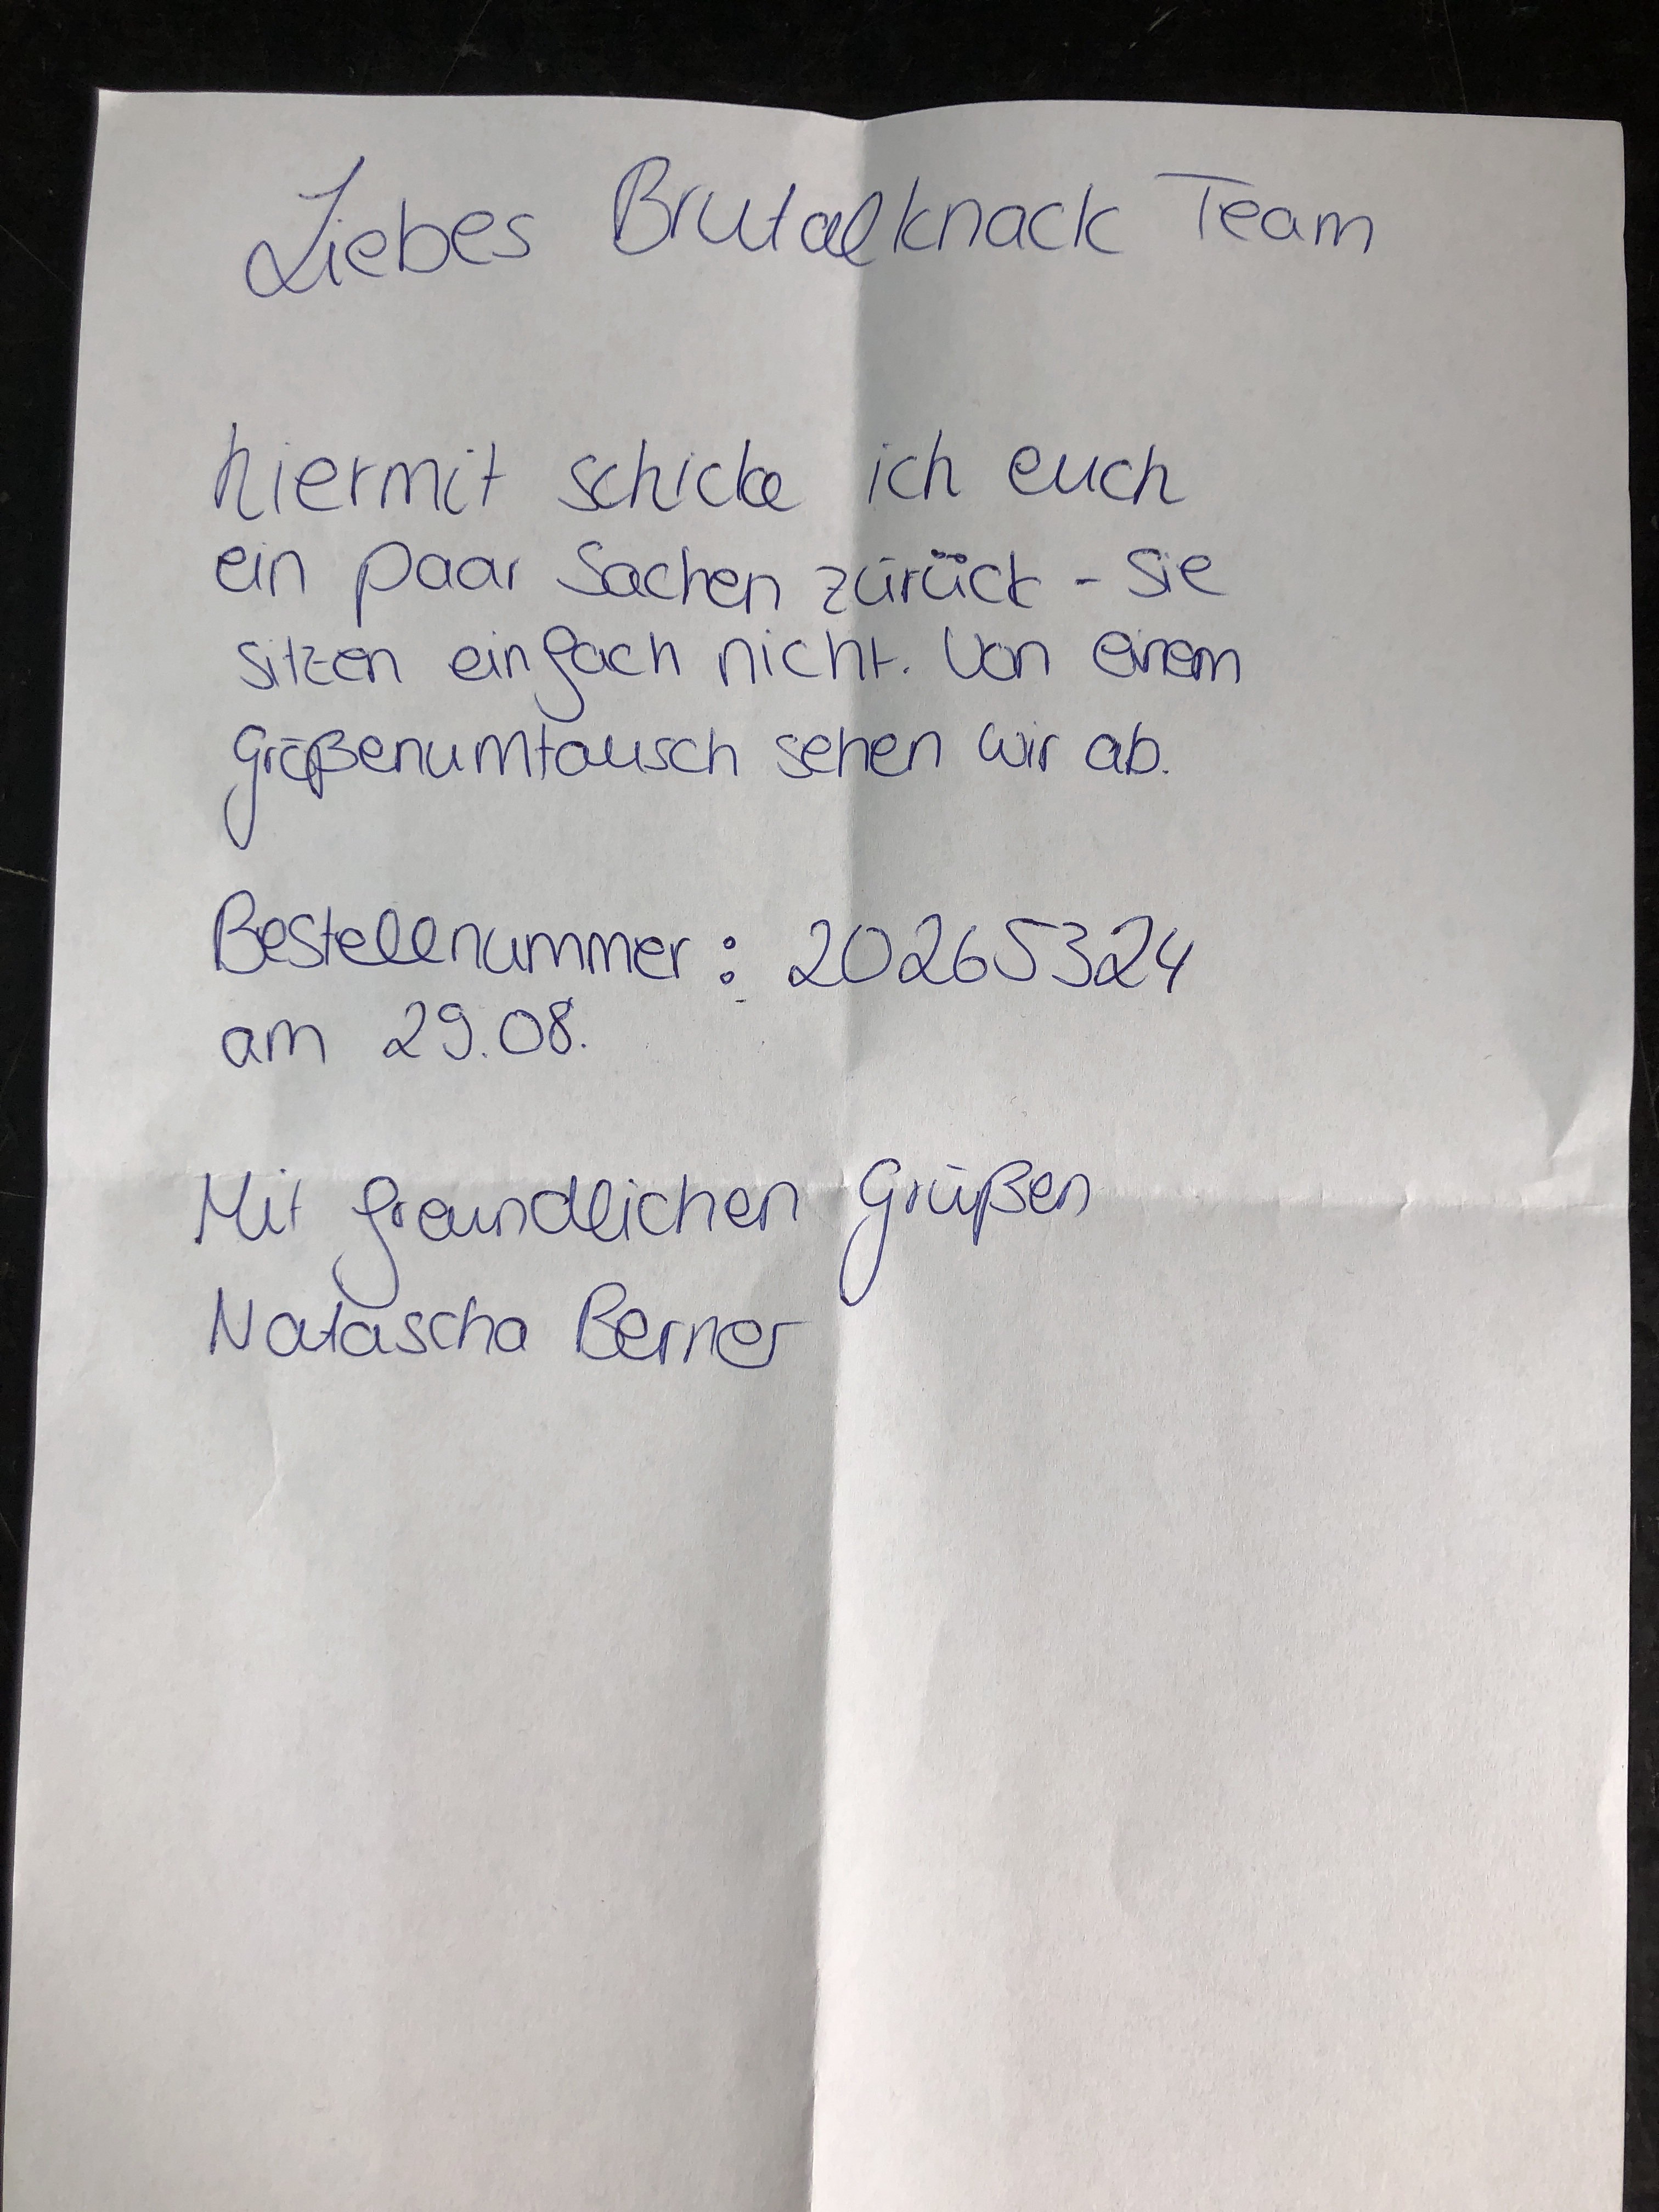 Liebes Brutalknack Team
hiermit schicke ich euch
ein paar Sachen zurück - sie
sitzen einfach nicht. Von einem
Größenumtausch sehen wir ab.
Bestellnummer: 20265324
am 29.08.
Mit freundlichen Grüßen
Natascha Berner